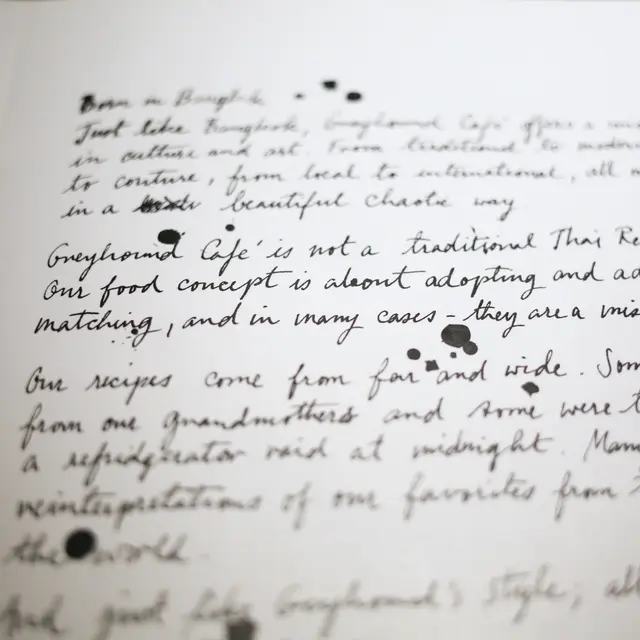 Born in Bangkok
Just like Bangkok, Greyhound Café offers a
in culture and art. From traditional to modern
to couture, from local to international, all
in a beautiful chaotic way
Greyhound Café is not a traditional Thai Re
Our food concept is about adopting and ad
matching, and in many cases - they are a mis
Our recipes come from far and wide. Som
from our grandmothers and some were t
a refridgerator raid at midnight. Man
reinterpretations of our favorites from
the world.
And just like Greyhound's style, all